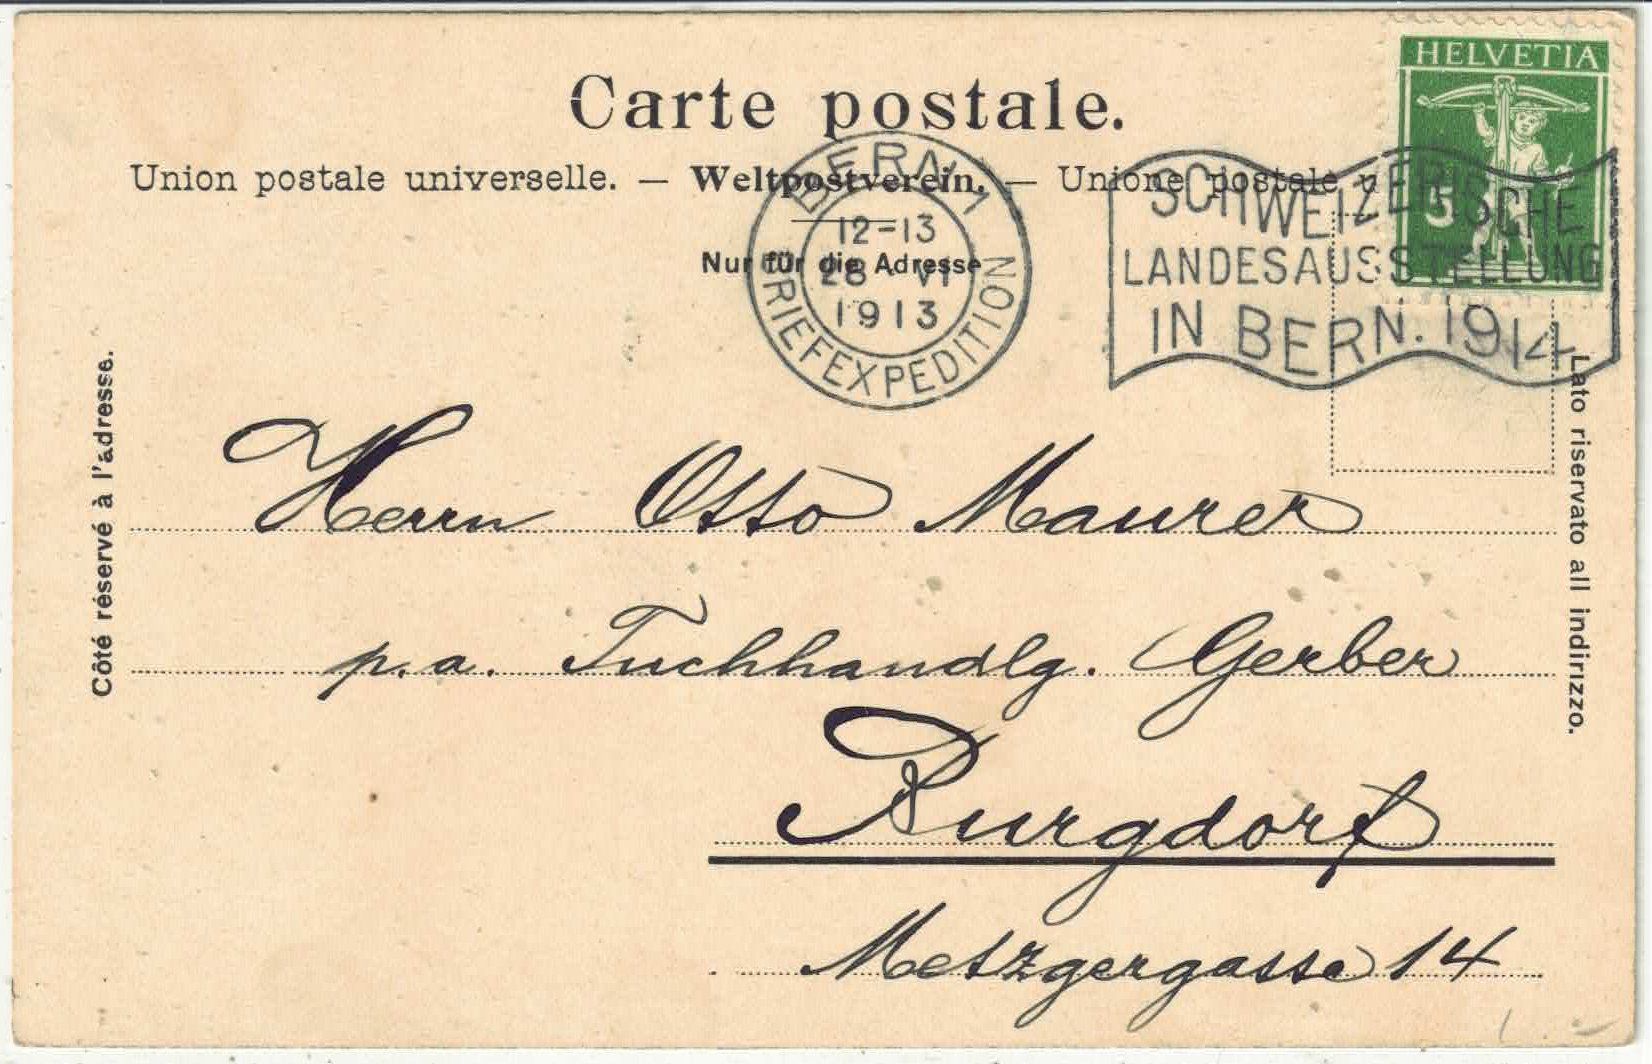 Carte postale.
HELVETIA
5
Union postale universelle. — Weltpostverein. — Unione postale
Nur für die Adresse
BERN 1
12-13
28 VI
1913
BRIEFEXPEDITION
SCHWEIZERISCHE
LANDESAUSSTELLUNG
IN BERN. 1914
Côté réservé à l'adresse.
Lato riservato all indirizzo.
Herrn Otto Maurer
p.a. Tuchhandlg. Gerber
Burgdorf
Metzgergasse 14